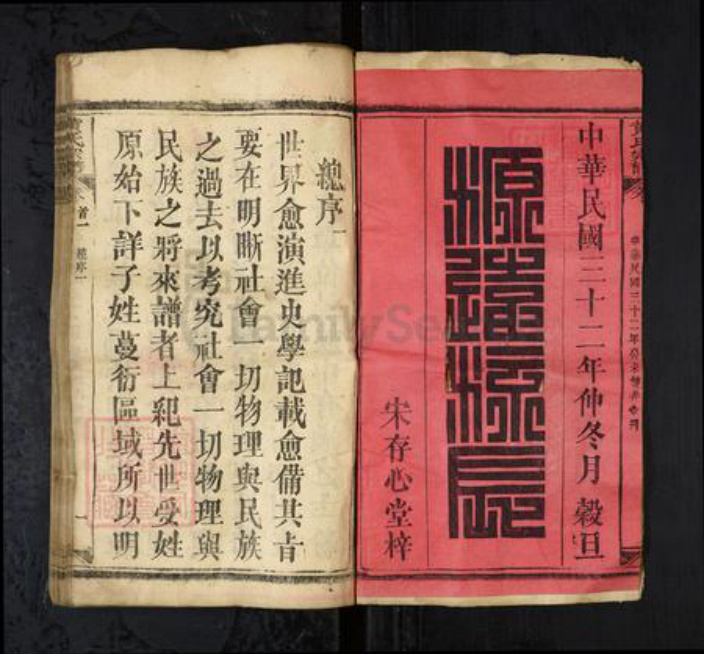 中華民國三十二年仲冬月穀旦
源遠流長
宋存心堂梓
總序
世界愈演進史學記載愈備其旨
要在明晰社會一切物理與民族
之過去以考究社會一切物理與
民族之將來譜者上紀先世受姓
原始下詳子姓蔓衍區域所以明
首一
總序一
FamilySe